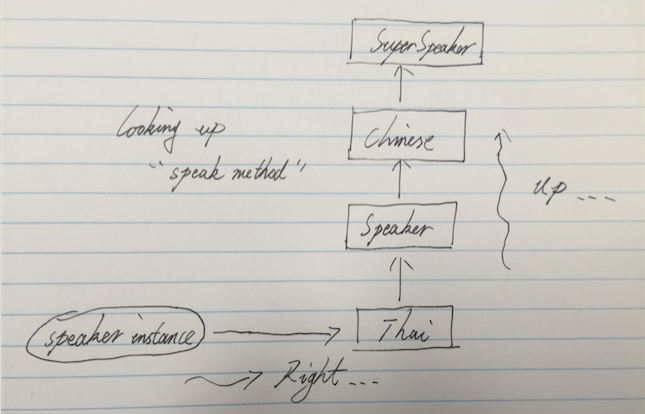 SuperSpeaker
Looking up
"speak method"
Chinese
Up ---
Speaker
speaker instance
Thai
Right ---